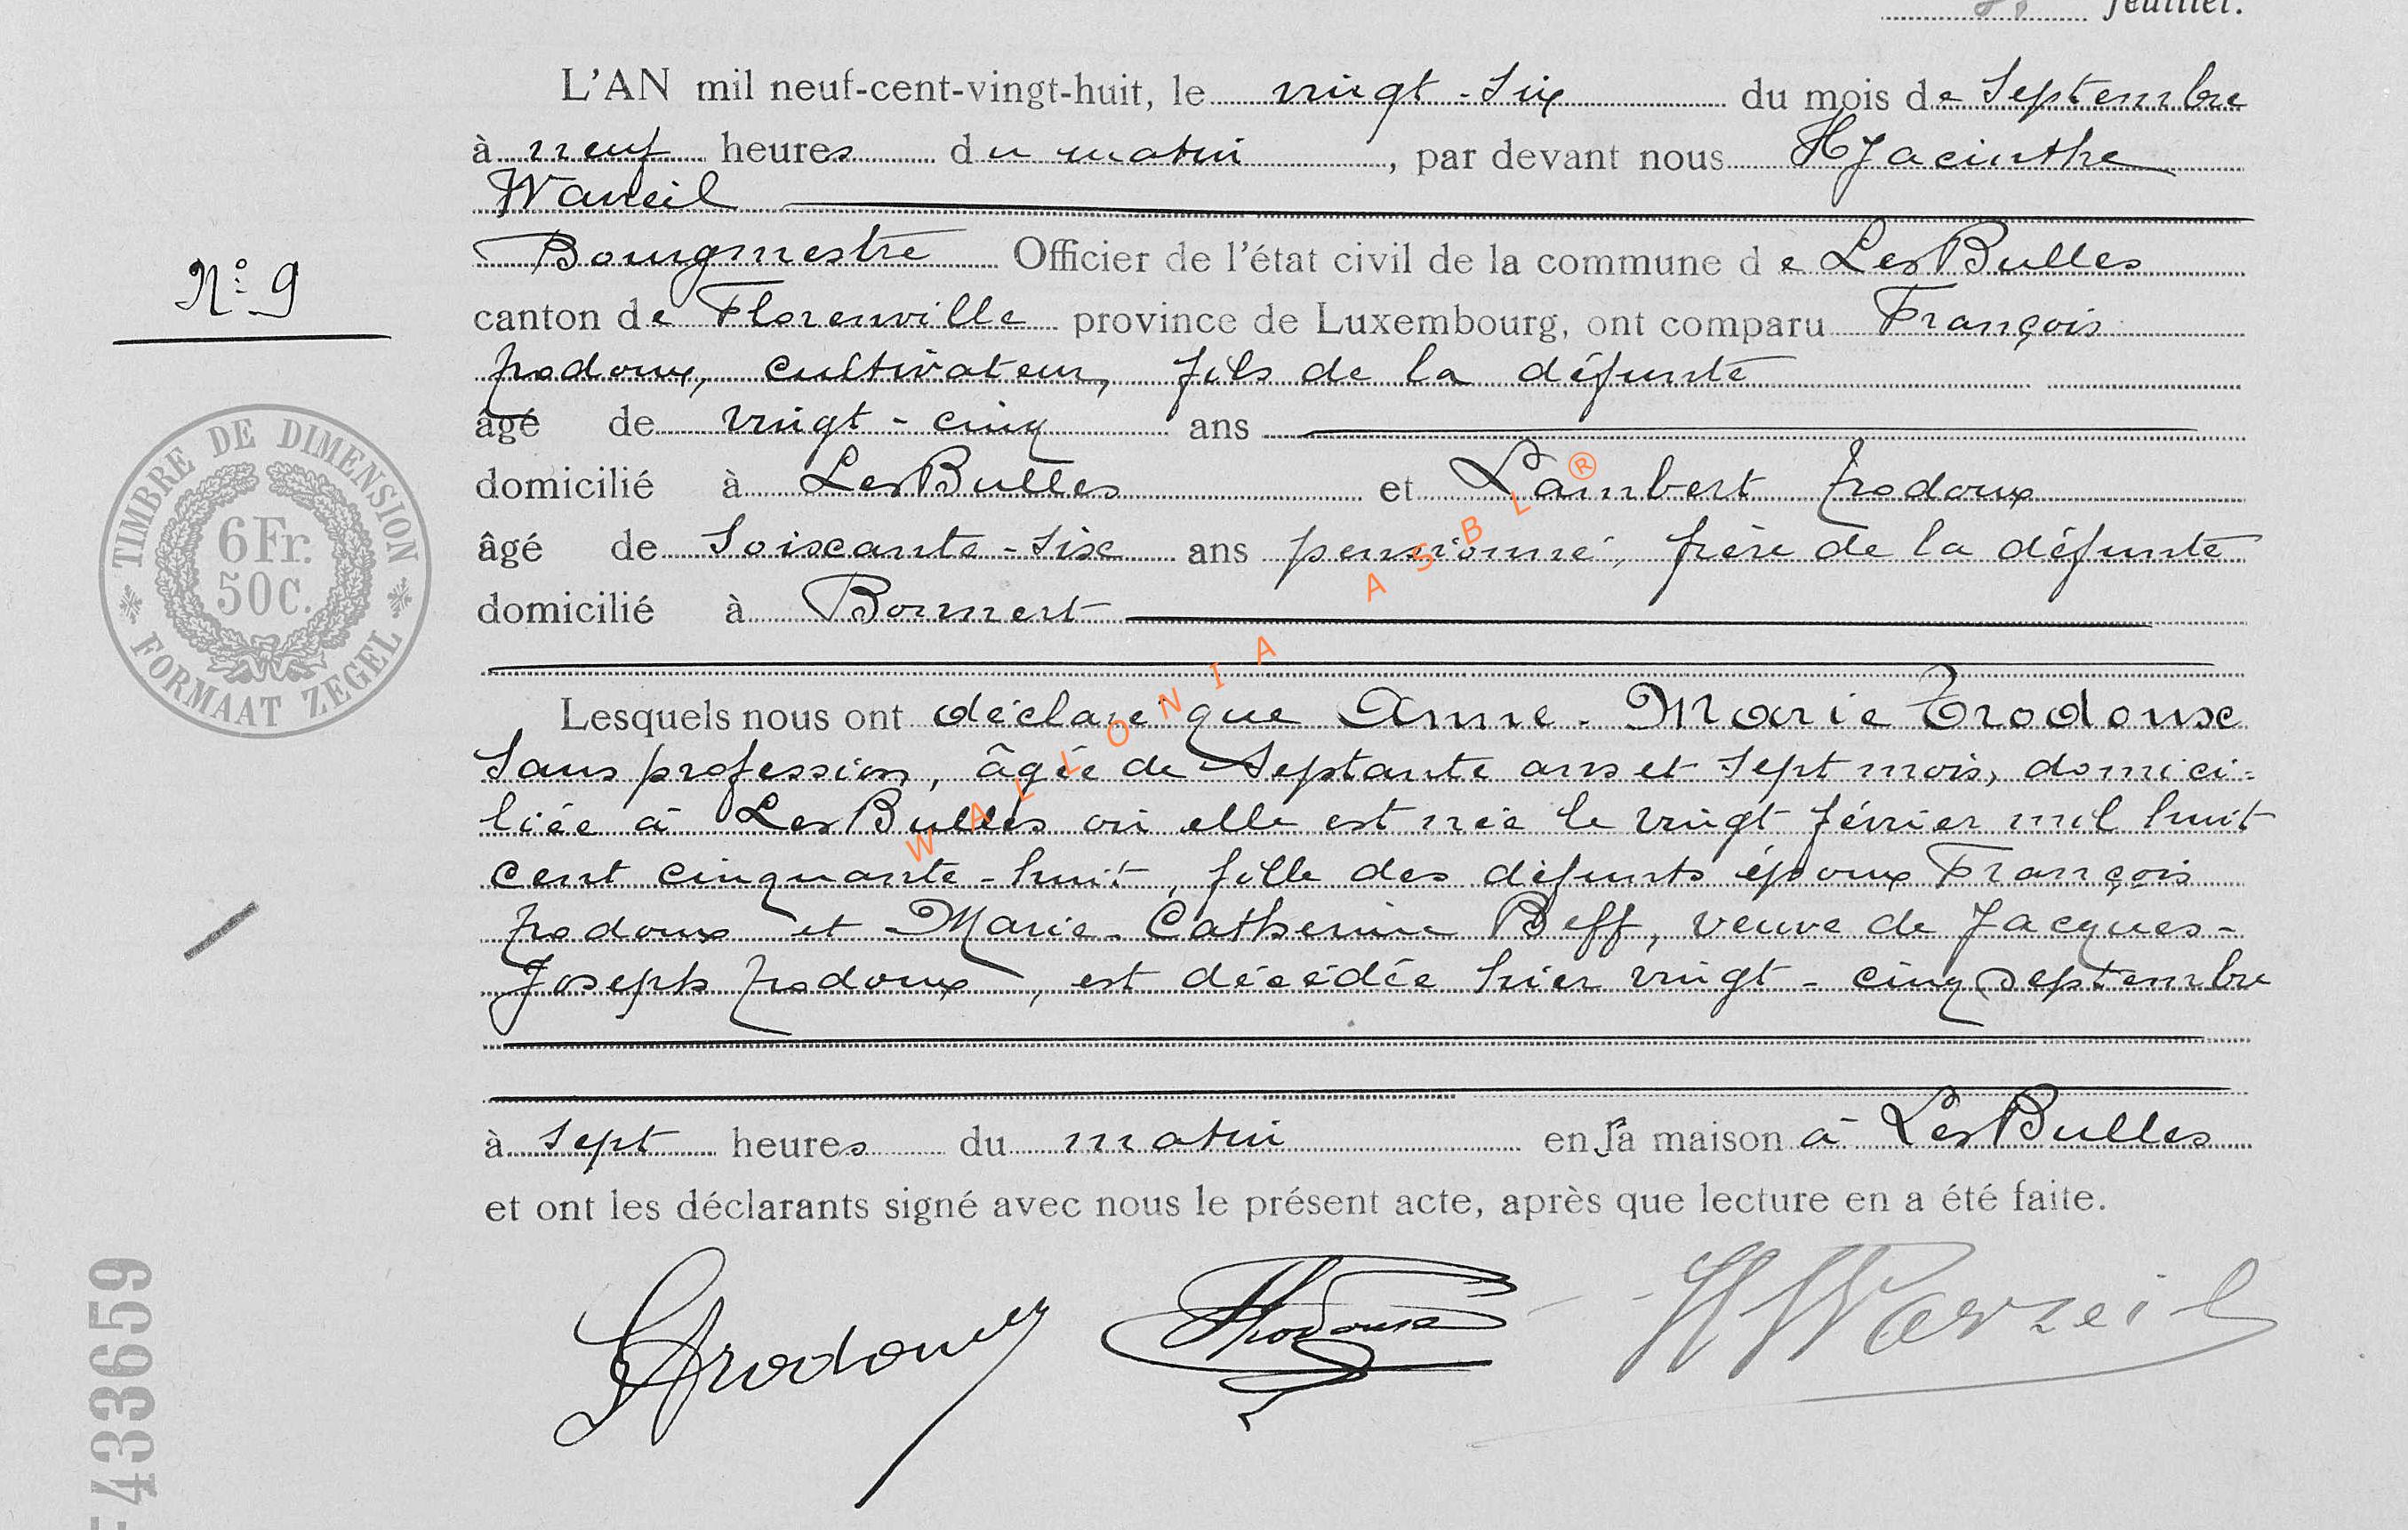 feuillet.
L'AN mil neuf-cent-vingt-huit, le vingt-six du mois de Septembre
à neuf heures du matin, par devant nous Hyacinthe
Warzeil
Bourgmestre Officier de l'état civil de la commune de Les Bulles
N° 9
canton de Florenville province de Luxembourg, ont comparu François
Trodoux, cultivateur, fils de la défunte
âgé de vingt-cinq ans
domicilié à Les Bulles et Lambert Trodoux
âgé de soixante-six ans pensionné, frère de la défunte
domicilié à Bonnert
TIMBRE DE DIMENSION
6 Fr.
50 C.
FORMAAT ZEGEL
WALLONIA ASBL ®
Lesquels nous ont déclaré que Anne-Marie Trodoux
sans profession, âgée de septante ans et sept mois, domici-
liée à Les Bulles où elle est née le vingt février mil huit
cent cinquante-huit, fille des défunts époux François
Trodoux et Marie-Catherine Beff, veuve de Jacques-
Joseph Trodoux, est décédée hier vingt-cinq septembre
à sept heures du matin en sa maison à Les Bulles
et ont les déclarants signé avec nous le présent acte, après que lecture en a été faite.
LTrodoux Trodoux HWarzeil
433659